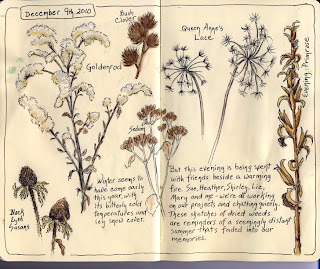 December 9th, 2010
Bush
Clover
Goldenrod
Sedum
Black
Eyed
Susans
Winter seems to
have come early
this year, with
its bitterly cold
temperatures and
icy snow cover.
Queen Anne's
Lace
Evening Primrose
But this evening is being spent
with friends beside a warming
fire. Sue, Heather, Shirley, Liz,
Mary and me - we're all working
on our projects and chatting quietly.
These sketches of dried weeds
are reminders of a seemingly distant
summer that's faded into our
memories.